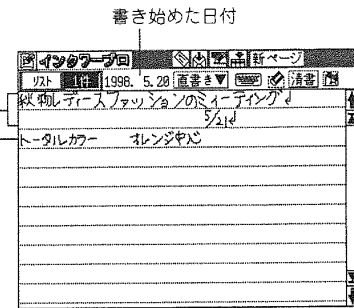 書き始めた日付
インクワープロ 新ページ
リスト 1件 1998. 5.20 直書き▼ 清書
秋物レディースファッションのミィーティング
5/21
トータルカラー オレンジ中心